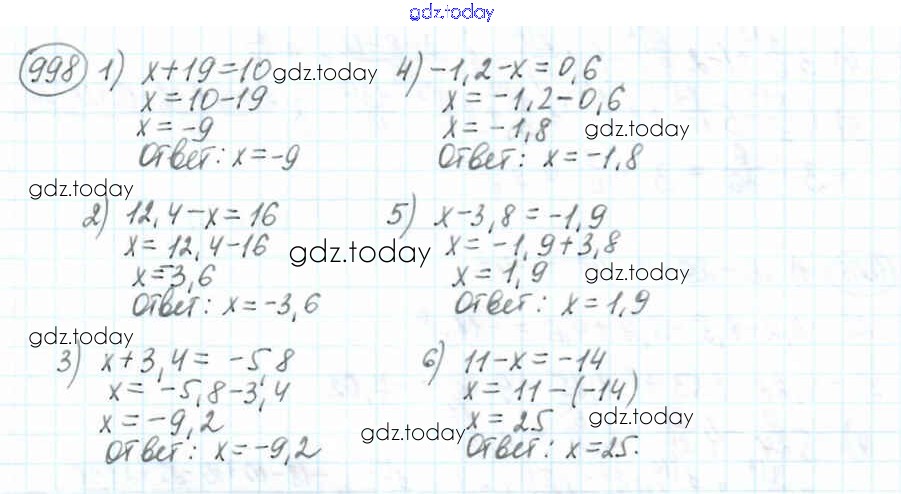 gdz.today
998 1) x+19=10 gdz.today
x=10-19
x=-9
Ответ: x=-9
4) -1,2-x=0,6
x=-1,2-0,6
x=-1,8 gdz.today
Ответ: x=-1,8
gdz.today
2) 12,4-x=16
x=12,4-16 gdz.today
x=-3,6
Ответ: x=-3,6
5) x-3,8=-1,9
x=-1,9+3,8
x=1,9 gdz.today
Ответ: x=1,9
gdz.today
3) x+3,4=-5,8
x=-5,8-3,4
x=-9,2
Ответ: x=-9,2
gdz.today
6) 11-x=-14
x=11-(-14)
x=25 gdz.today
Ответ: x=25.